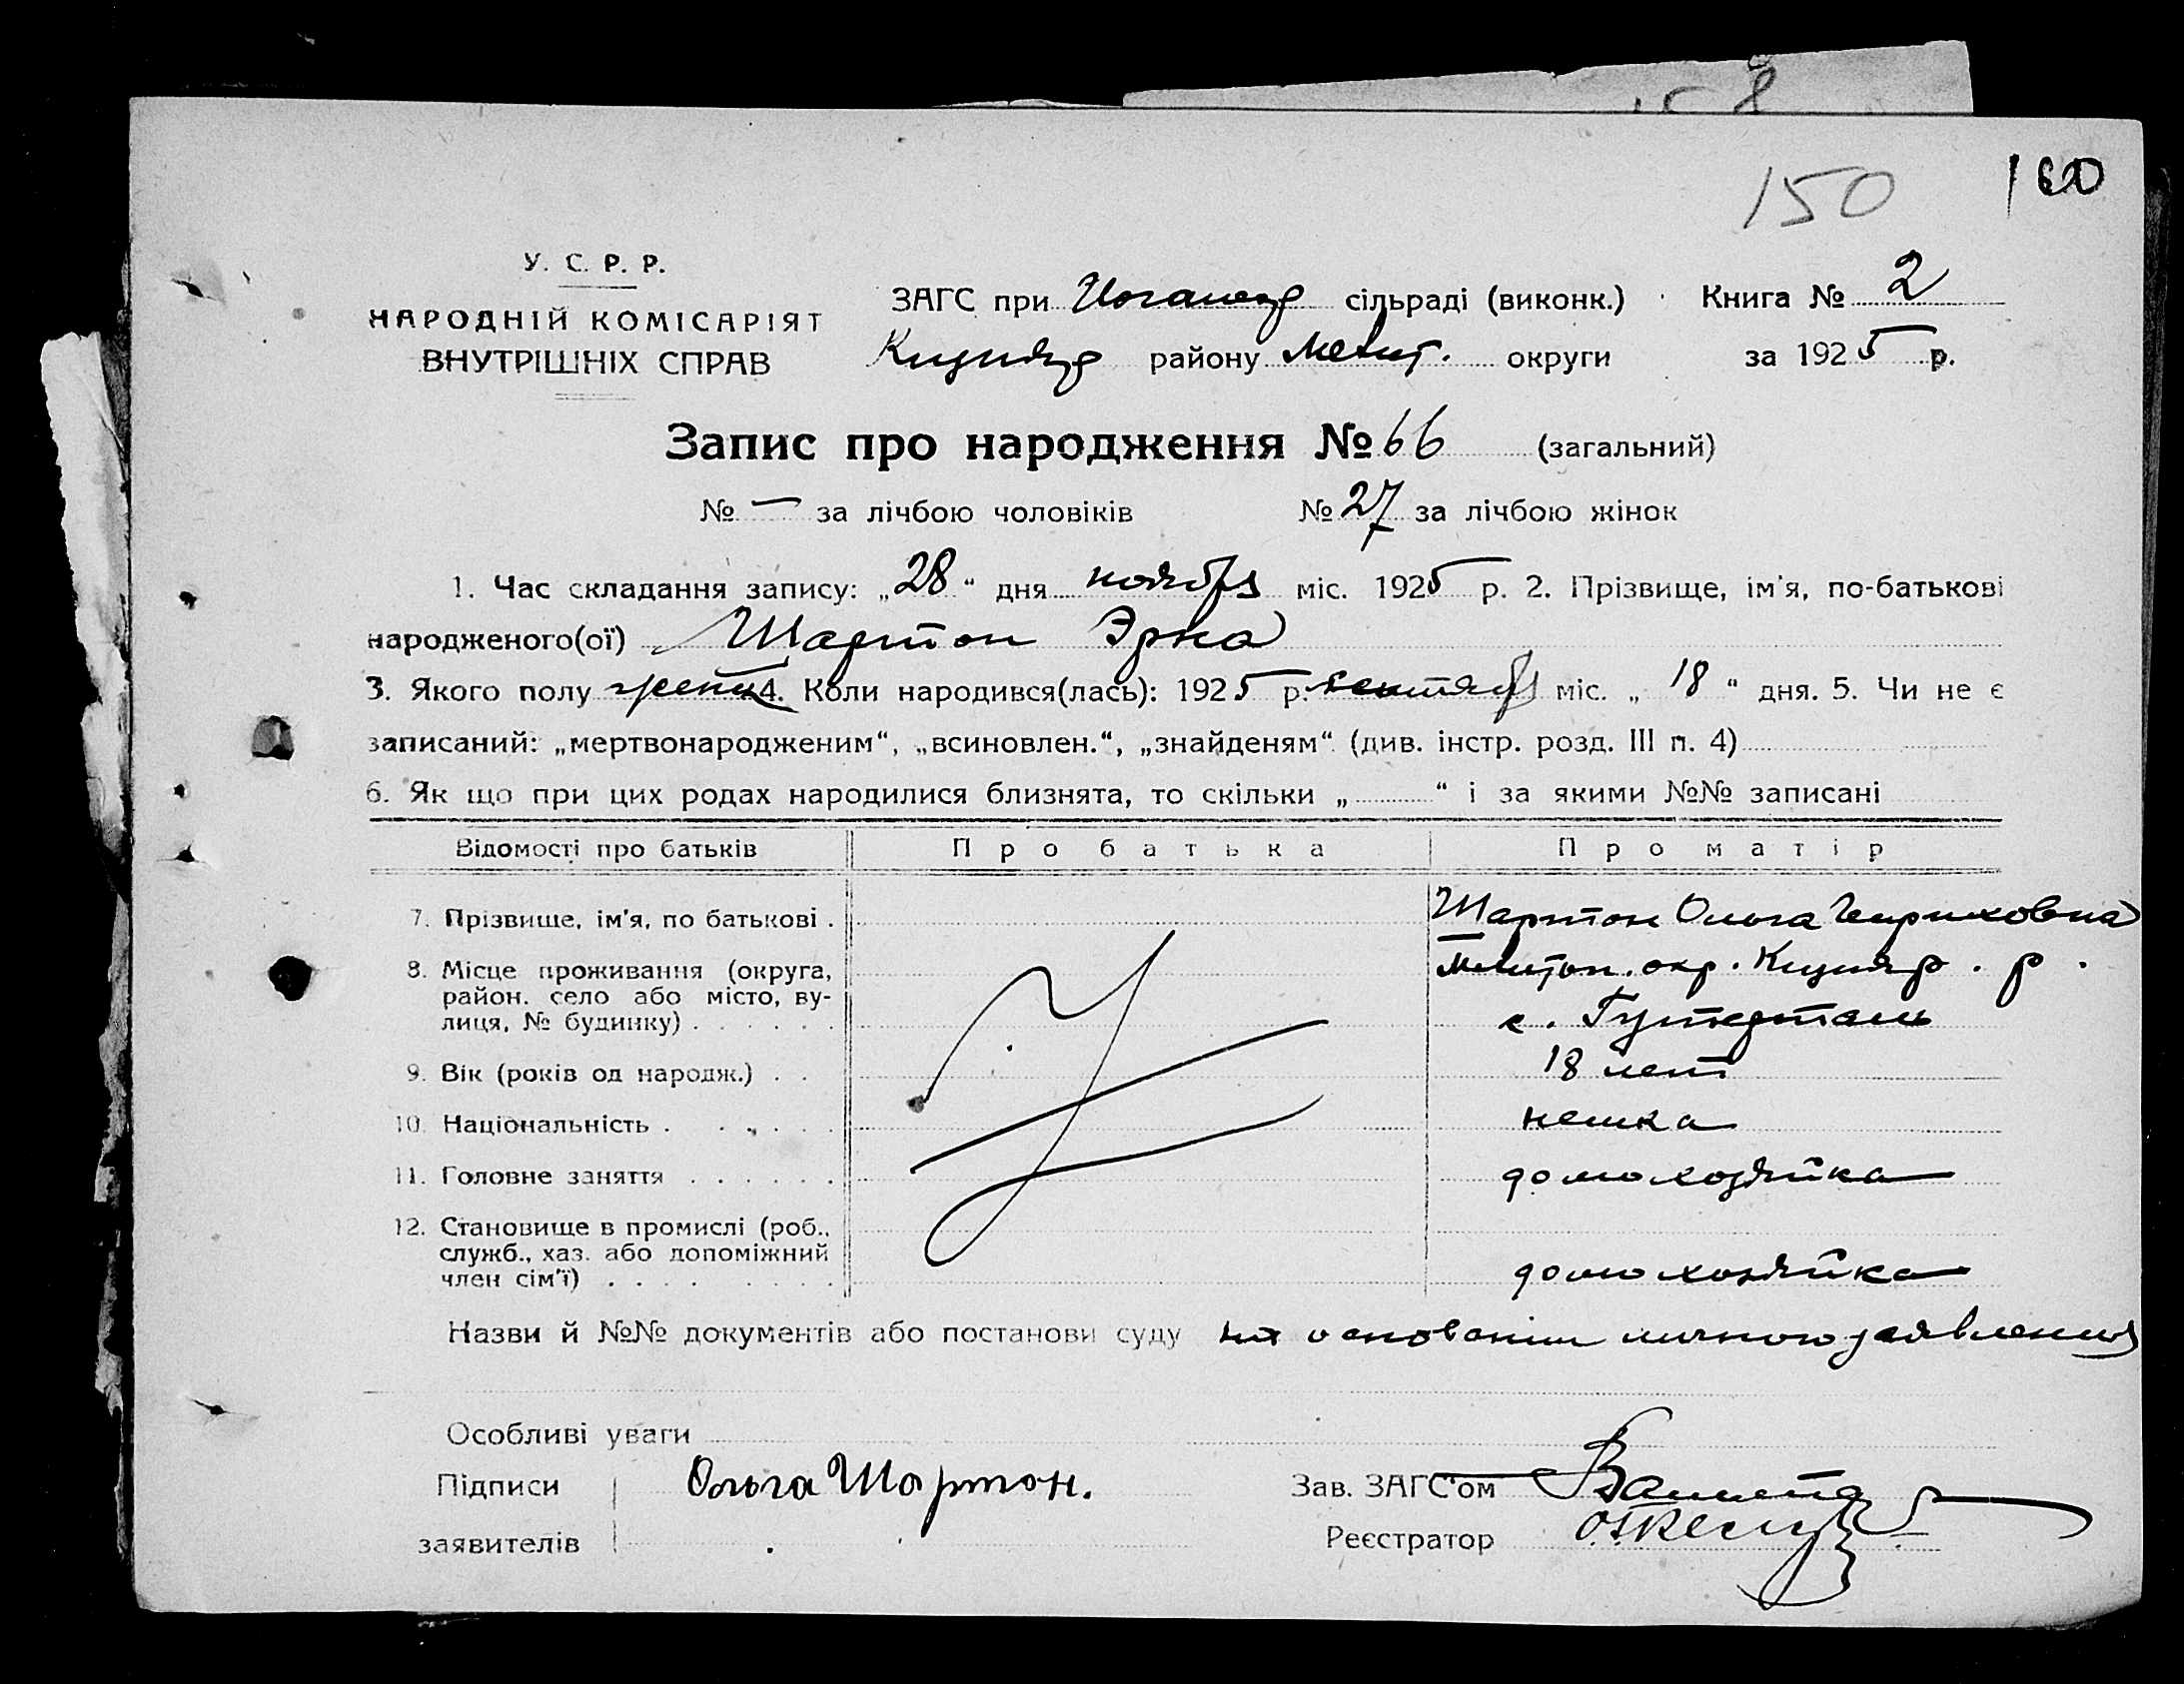 150 160
У. С. Р. Р.
НАРОДНІЙ КОМІСАРІЯТ
ВНУТРІШНІХ СПРАВ
ЗАГС при сільраді (виконк.) Книга № 2
району Мелит. округи за 1925 р.
Запис про народження № 66 (загальний)
№ — за лічбою чоловіків № 27 за лічбою жінок
1. Час складання запису: „28“ дня ноября міс. 1925 р. 2. Прізвище, ім'я, по-батькові
народженого(ої) Шартон Эрна
3. Якого полу женск 4. Коли народився(лась): 1925 р. сентября міс. „ 18 “ дня. 5. Чи не є
записаний: „мертвонародженим“, „всиновлен.“, „знайденям“ (див. інстр. розд. III п. 4)
6. Як що при цих родах народилися близнята, то скільки „ “ і за якими №№ записані
Відомості про батьків Про батька Про матір
7. Прізвище, ім'я, по батькові . Шартон Ольга Генриховна
8. Місце проживання (округа, Мелитоп. окр. р.
район. село або місто, ву-
лиця, № будинку) . . . . . . с.
9. Вік (років од народж.) . . 18 лет
10. Національність . . . . . немка
11. Головне заняття . . . . . . домохозяйка
12. Становище в промислі (роб.,
служб., хаз. або допоміжний
член сім'ї) . . . . . . . . домохозяйка
Назви й №№ документів або постанови суду на основании личного заявления
Особливі уваги
Підписи Ольга Шартон. Зав. ЗАГС'ом
заявителів Реєстратор